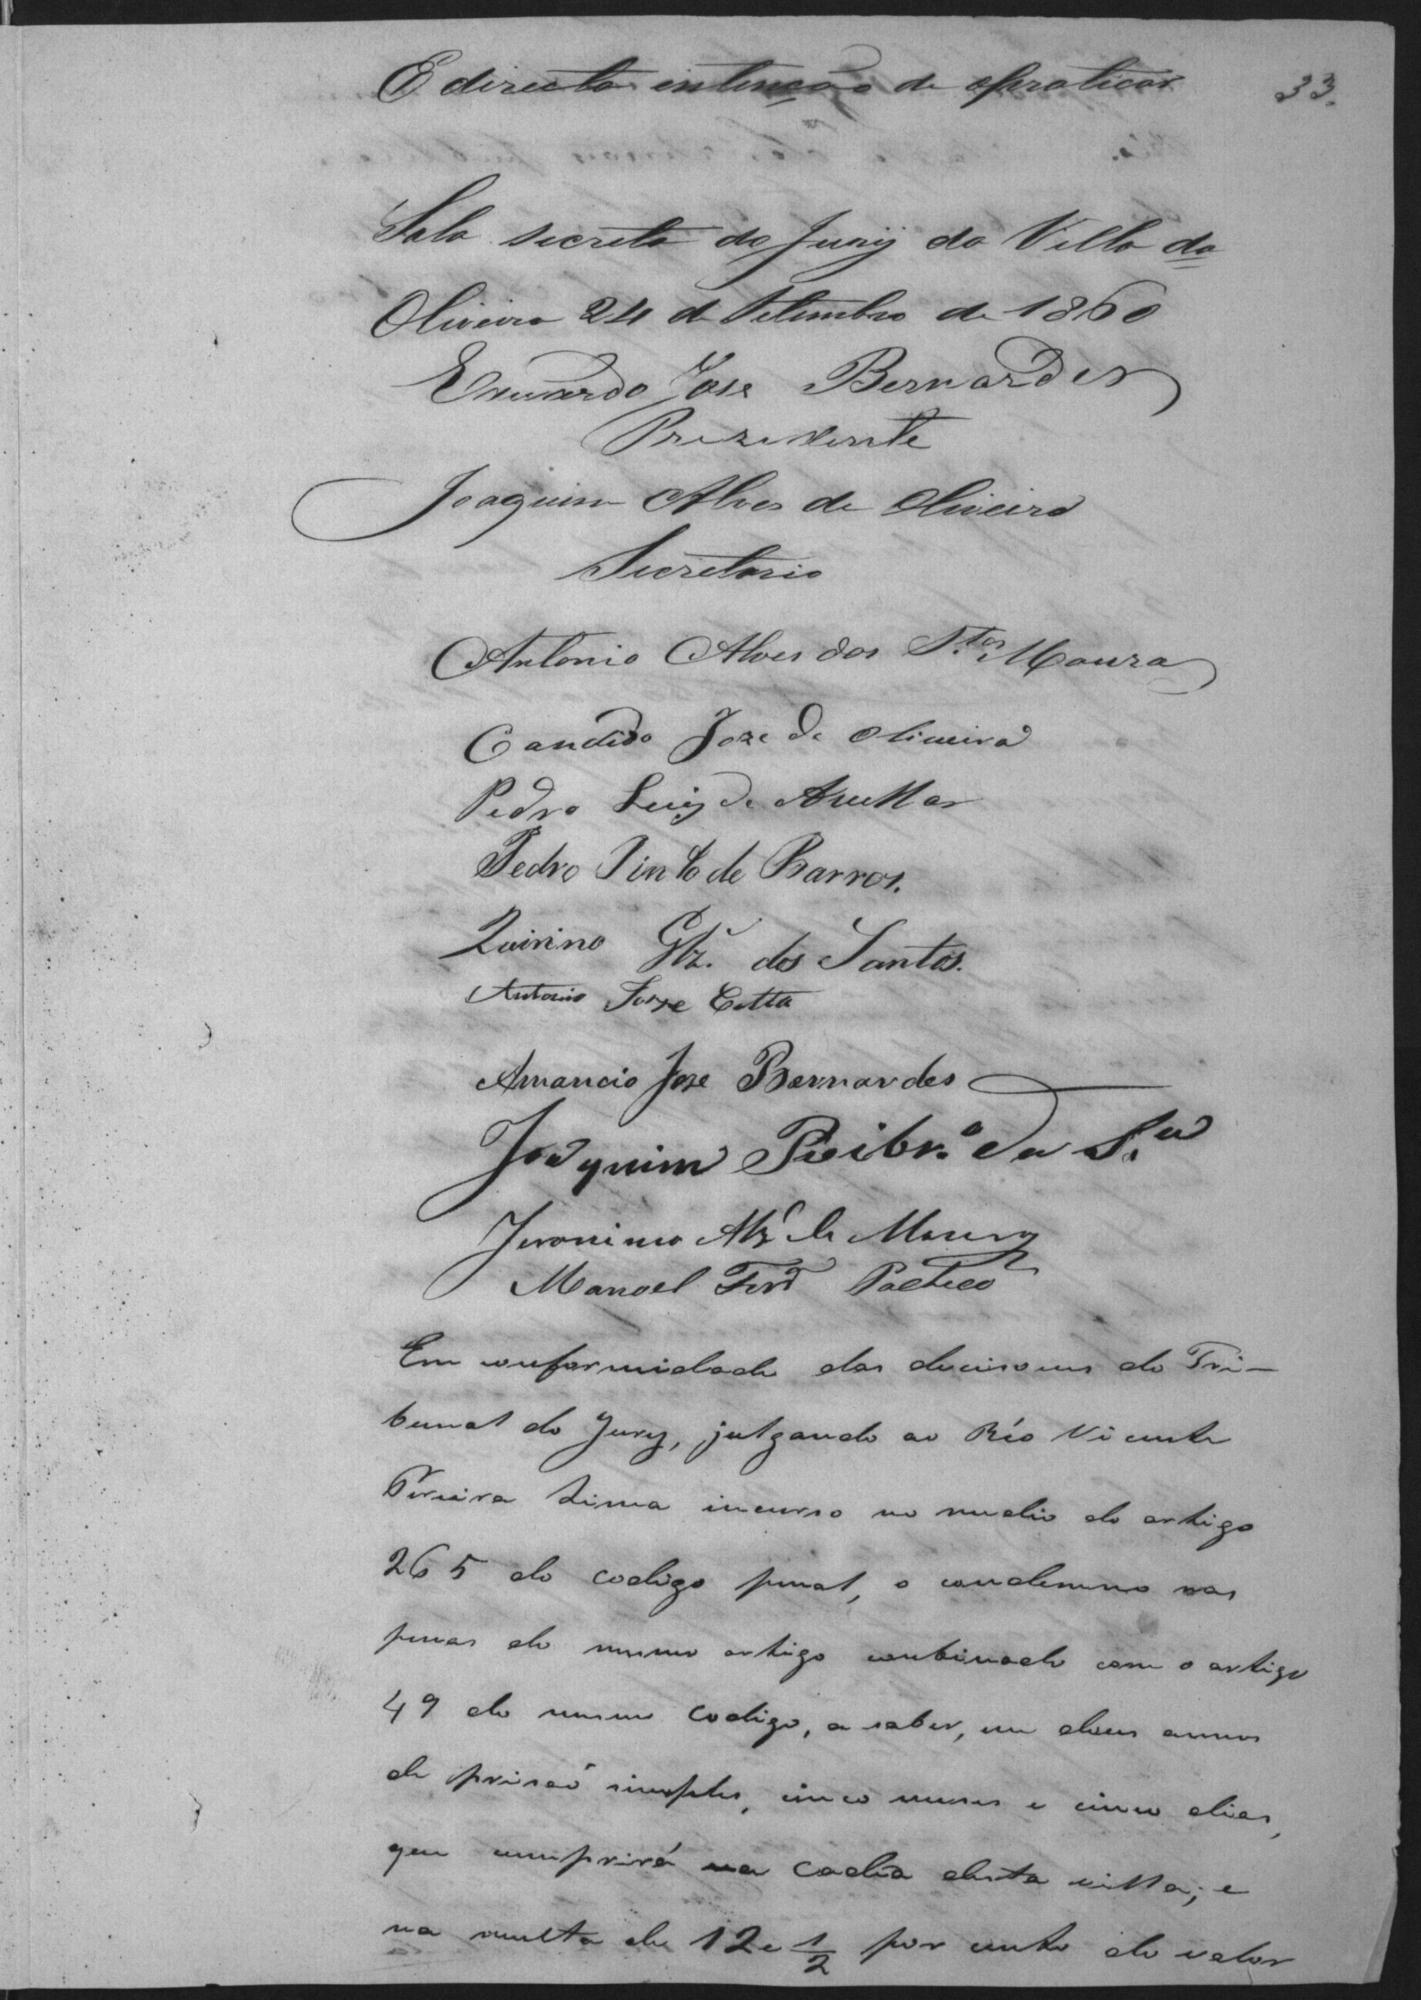 E directa intenção de o praticar
33.
Sala secreta do Jury da Villa da
Oliveira 24 de Setembro de 1860
Eduardo Jose Bernardes
Prezidente
Joaquim Alves de Oliveira
Secretario
Antonio Alves dos S.tos Moura
Candido Joze de Oliveira
Pedro Luiz de Avellar
Pedro Pinto de Barros.
Quirino Glz. dos Santos.
Antonio Joze Cotta
Amancio Joze Bernardes
Joaquim Ribr.o da S.a
Jeronimo Alz de Moura
Manoel Ferr Pacheco
Em conformidade das decisoens do Tri-
bunal do Jury, julgando ao Réo Vicente
Pereira Lima incurso no medio do artigo
265 do codigo penal, o condemno nas
penas do mesmo artigo conbinado com o artigo
49 do mesmo codigo, a saber, em dous annos
de prisaõ simples, cinco meses e cinco dias,
que cumprirá na cadêa desta villa; e
na multa de 12 e 1/2 por cento do valor